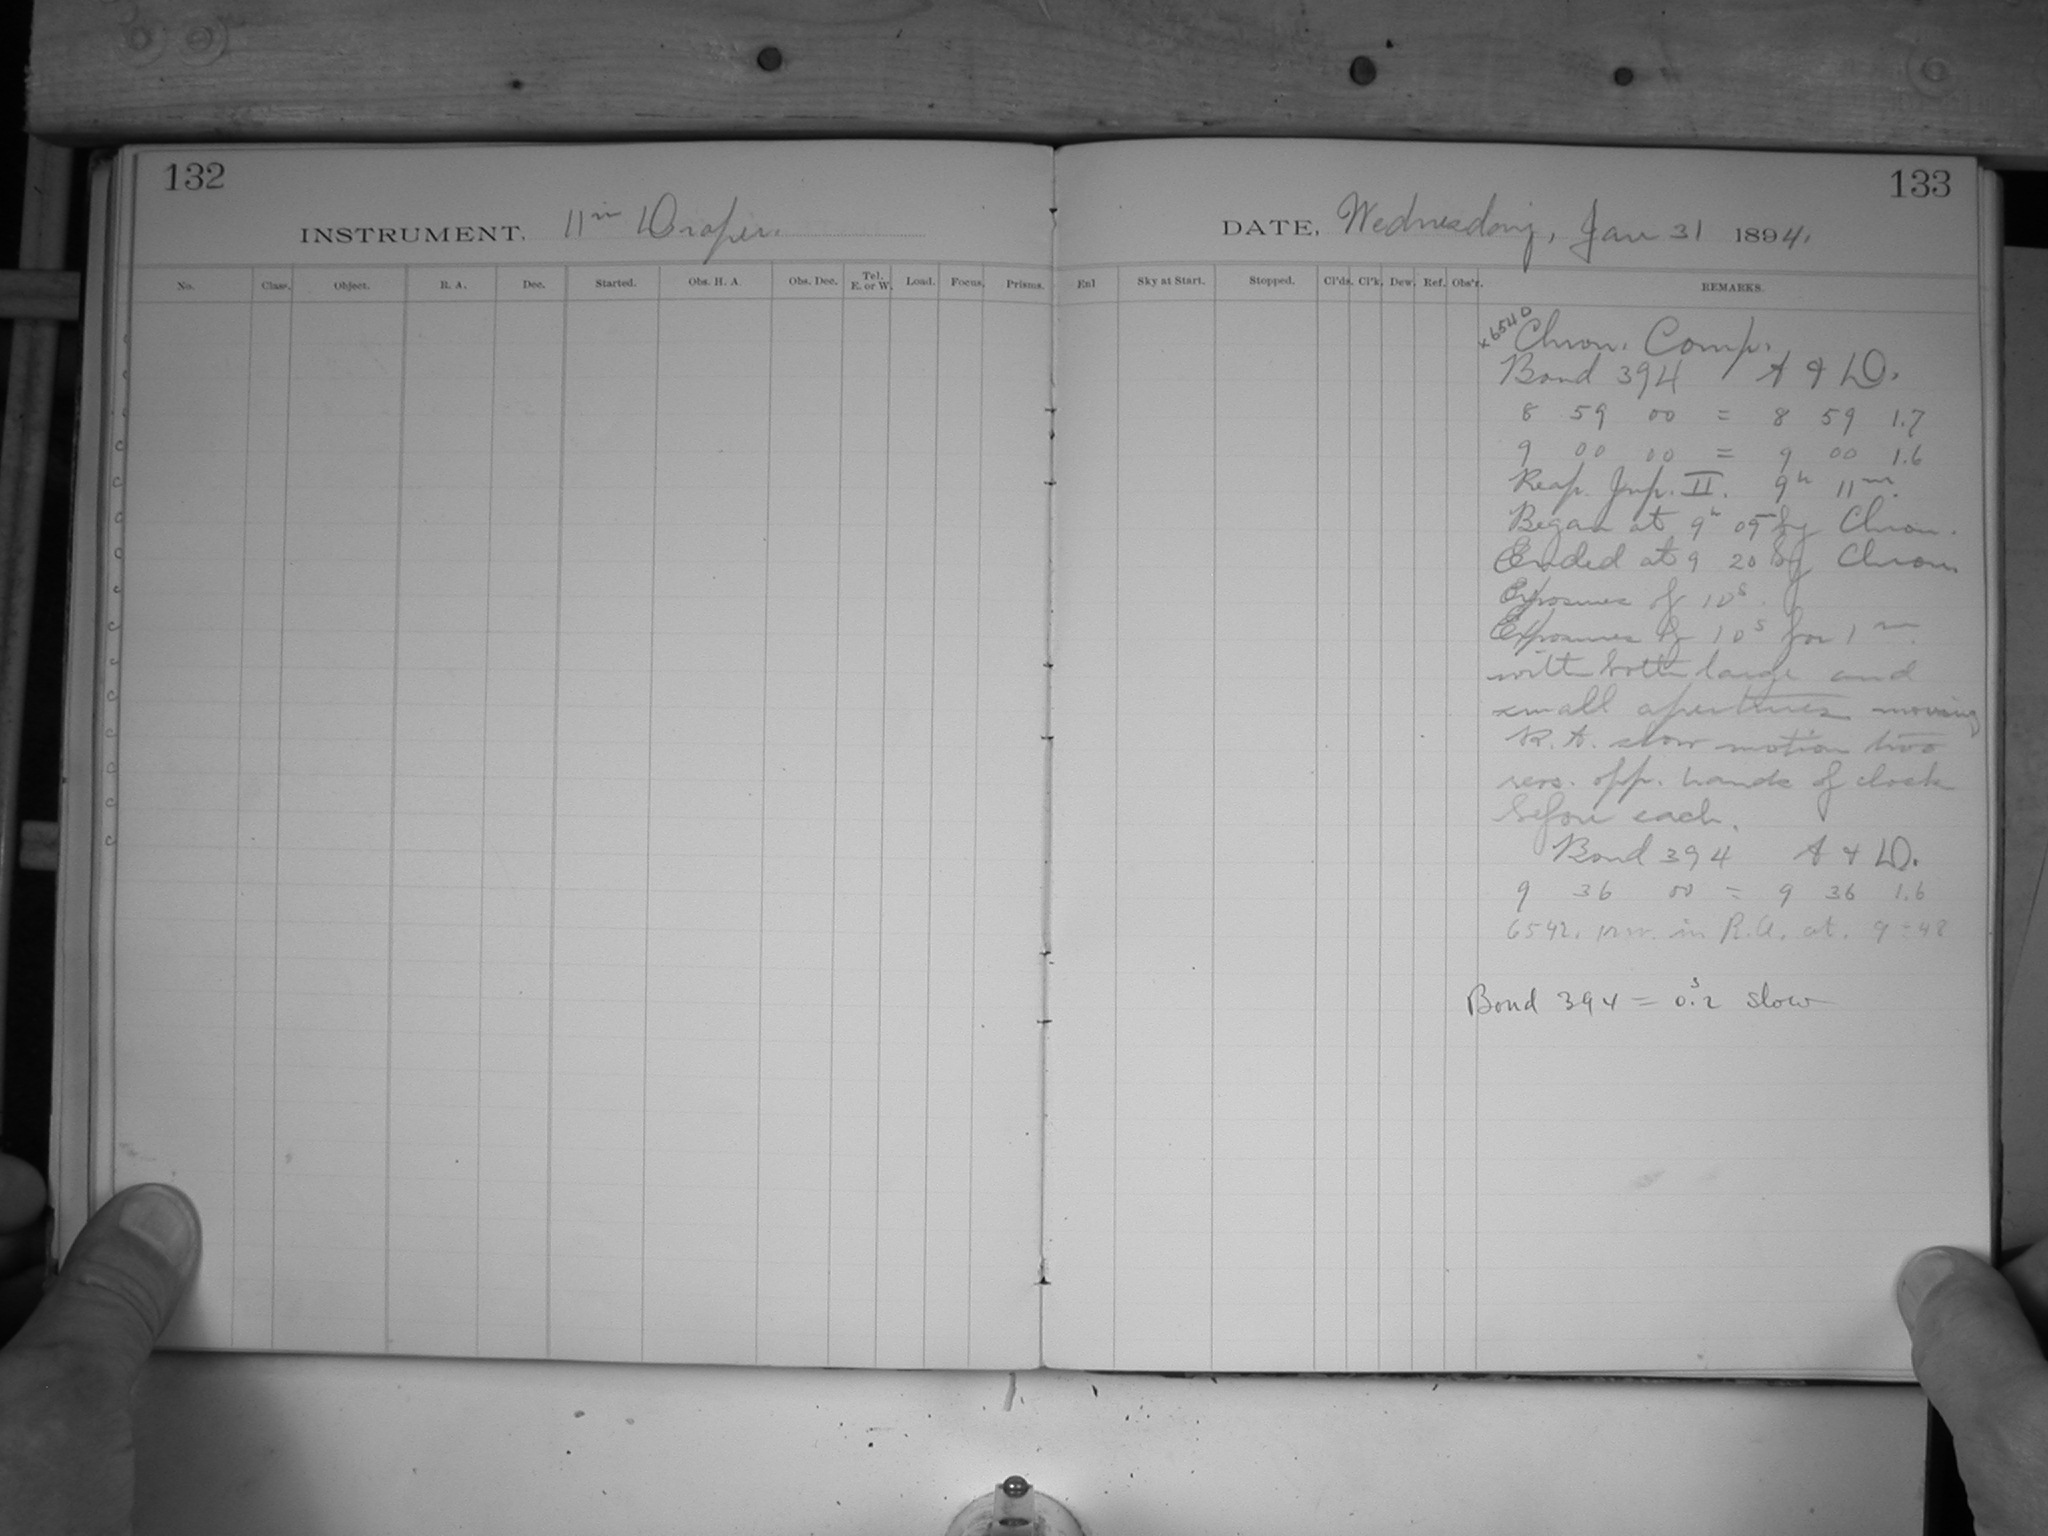 132
INSTRUMENT. 11 in Draper.
No. Class. Object. R. A. Dec. Started. Obs. H. A. Obs. Dec. Tel. E. or W. Load. Focus. Prisms.
133
DATE, Wednesday, Jan 31 1894.
Enl Sky at Start. Stopped. Cl'ds. Cl'k. Dew. Ref. Obs'r. REMARKS.
x6540
Chron. Comp.
Bond 394 A & D.
8 59 00 = 8 59 1.7
9 00 00 = 9 00 1.6
Reap. Jup. II. 9h 11m.
Began at 9h 05 by Chron.
Ended at 9 20 by Chron.
Exposures of 10s.
Exposures of 10s for 1m.
with both large and
small apertures moving
R. A. slow motion two
revs. opp. hands of clock
before each.
Bond 394 A & D.
9 36 00 = 9 36 1.6
6542. in R.A. at. 9=48
Bond 394 = 0.s2 slow